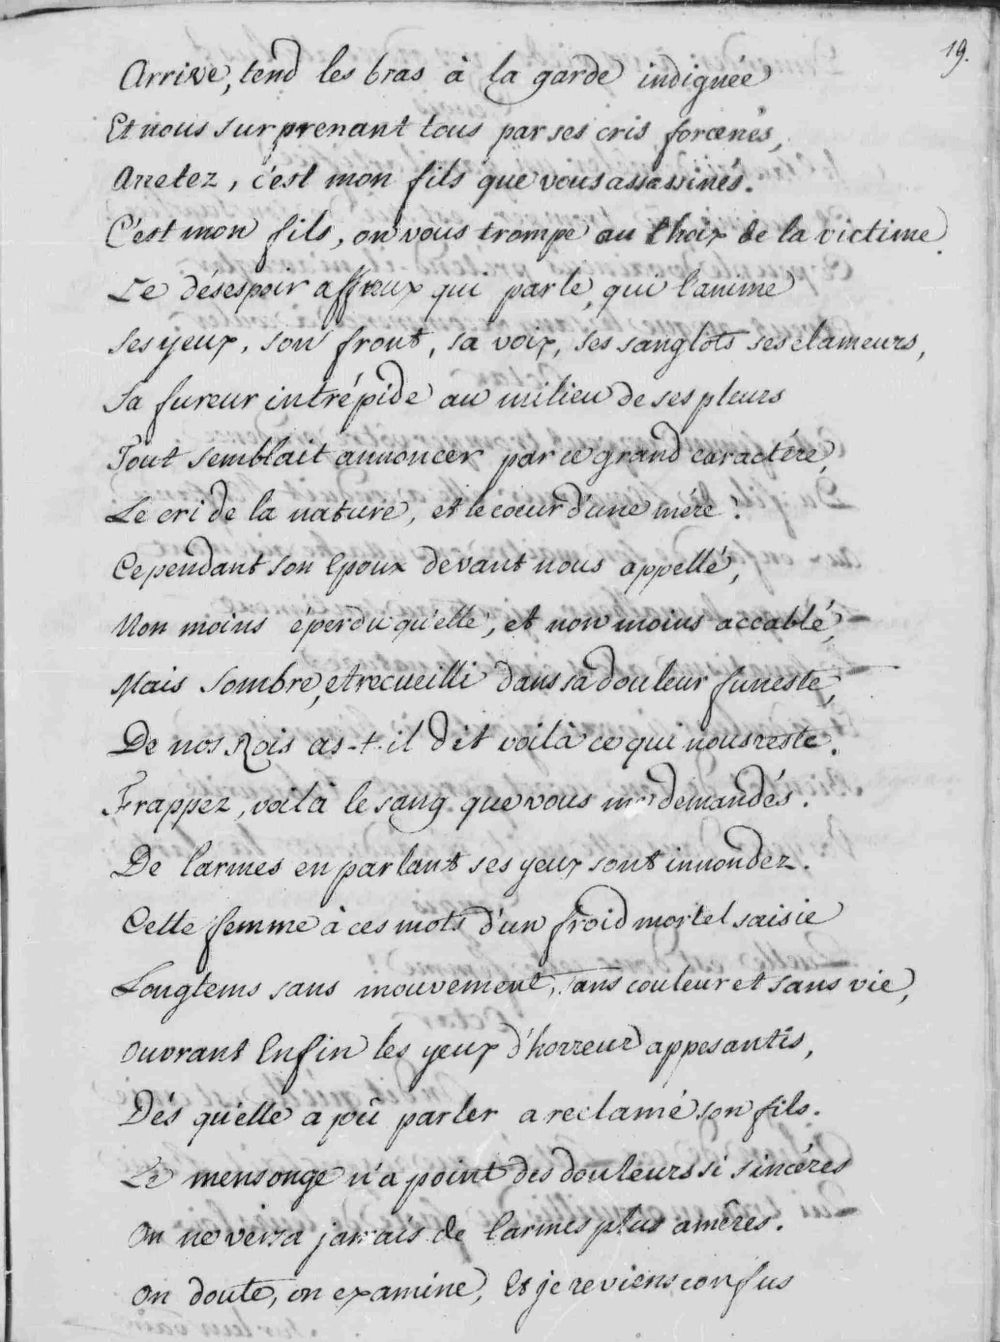 19.
Arrive, tend les bras à la garde indignée
Et nous surprenant tous par ses cris forcenés,
Arretez, c'est mon fils que vous assassinés.
C'est mon fils, on vous trompe au choix de la victime.
Le désespoir affreux qui parle, qui l'anime
Ses yeux, son front, sa voix, ses sanglots ses clameurs,
Sa fureur intrépide au milieu de ses pleurs
Tout semblait annoncer par ce grand caractère,
Le cri de la nature, et le cœur d'une mère!
Cependant son Epoux devant nous appellé,
Non moins éperdu qu'elle, et non moins accablé,
Mais sombre, et recueilli dans sa douleur funeste,
De nos Rois as-t-il dit voilà ce qui nous reste.
Frappez, voilà le sang que vous me demandés.
De larmes en parlant ses yeux sont innondez.
Cette femme à ces mots d'un froid mortel saisie
Longtems sans mouvement, sans couleur et sans vie,
Ouvrant Enfin les yeux d'horreur appesantis,
Dés qu'elle a pû parler a reclamé son fils.
Le mensonge n'a point des douleurs si sincéres
On ne versa jamais de larmes plus amêres.
On doute, on examine, Et je reviens confus